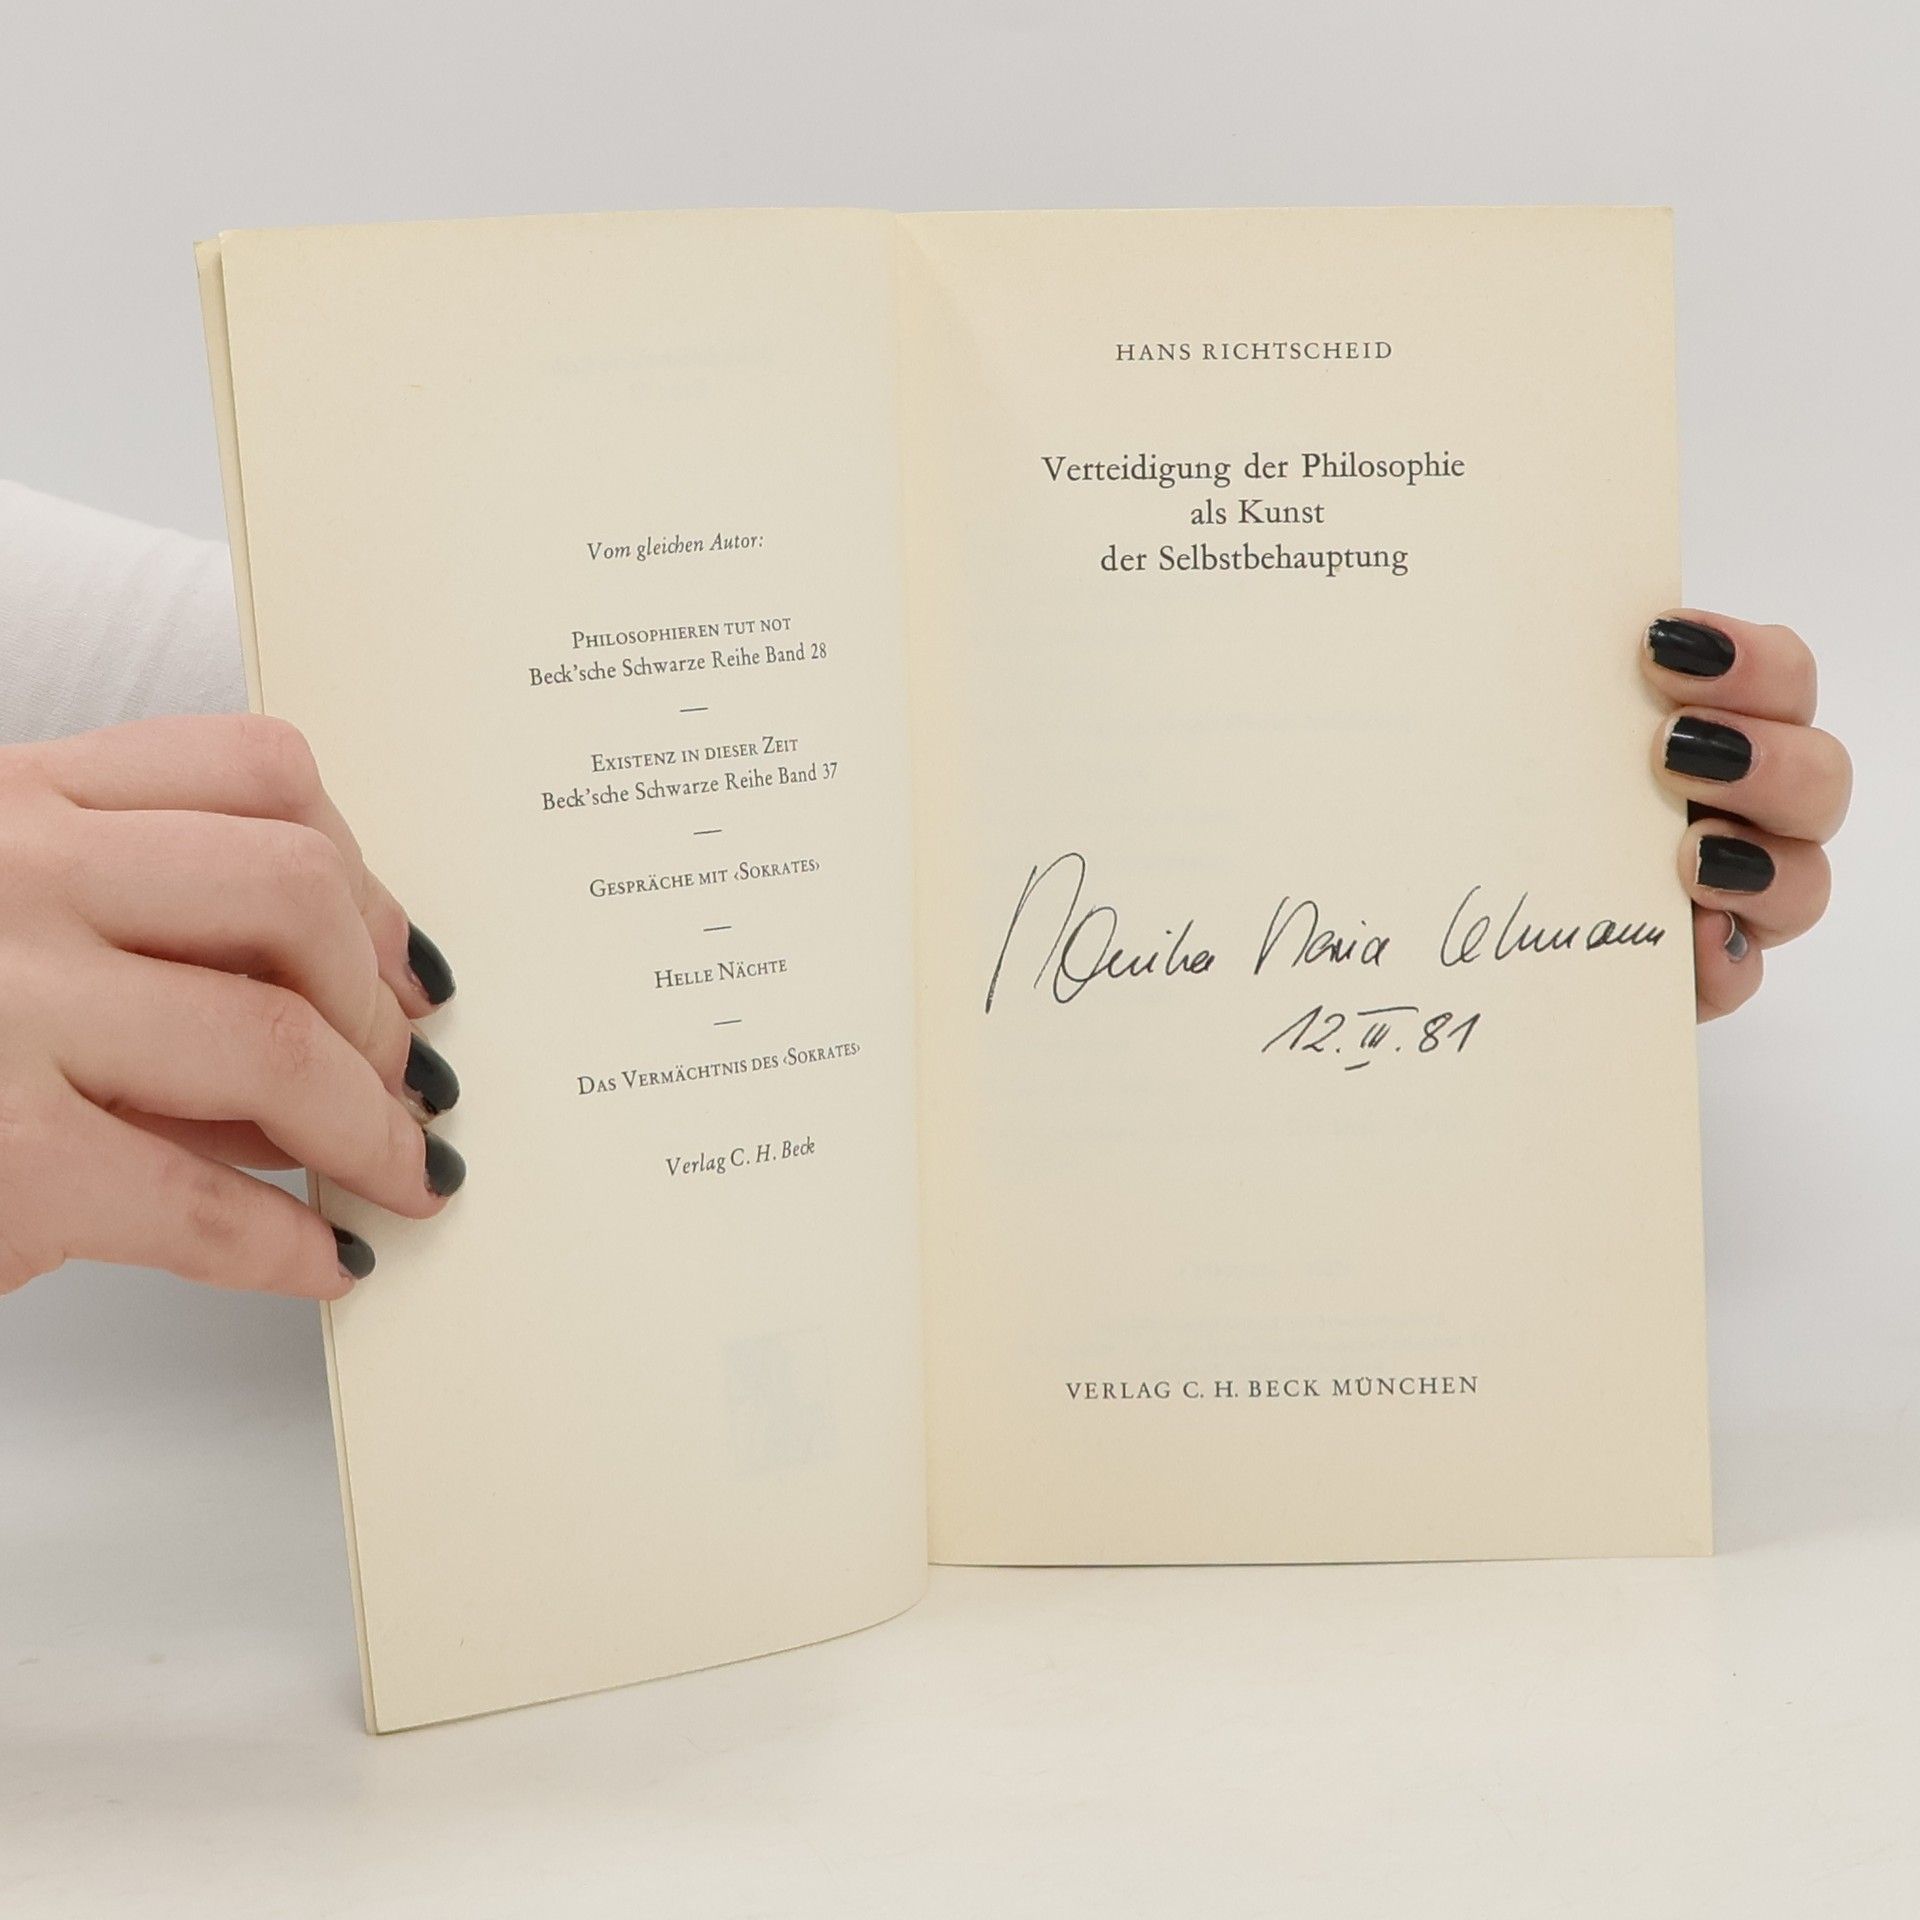 Vom gleichen Autor:
PHILOSOPHIEREN TUT NOT
Beck'sche Schwarze Reihe Band 28
—
EXISTENZ IN DIESER ZEIT
Beck'sche Schwarze Reihe Band 37
—
GESPRÄCHE MIT ‹SOKRATES›
—
HELLE NÄCHTE
—
DAS VERMÄCHTNIS DES ‹SOKRATES›
Verlag C. H. Beck
HANS RICHTSCHEID
Verteidigung der Philosophie
als Kunst
der Selbstbehauptung
Monika Maria Lehmann
12. III. 81
VERLAG C. H. BECK MÜNCHEN